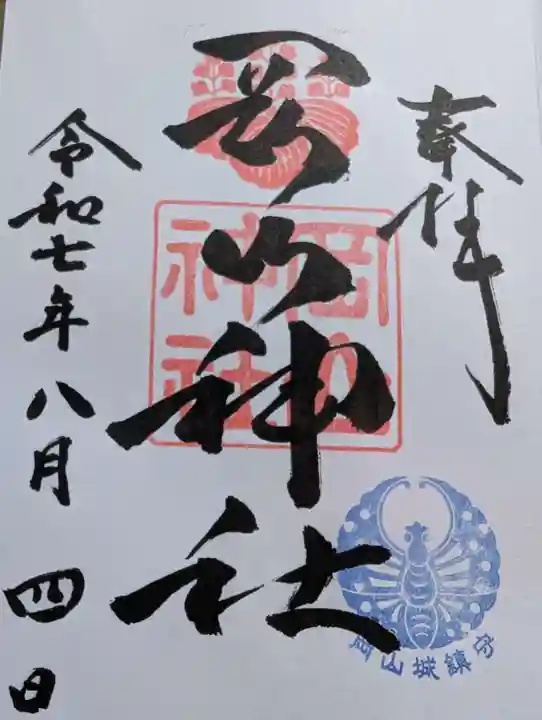 奉拝
岡山神社
岡山神社
岡山城鎮守
令和七年八月四日